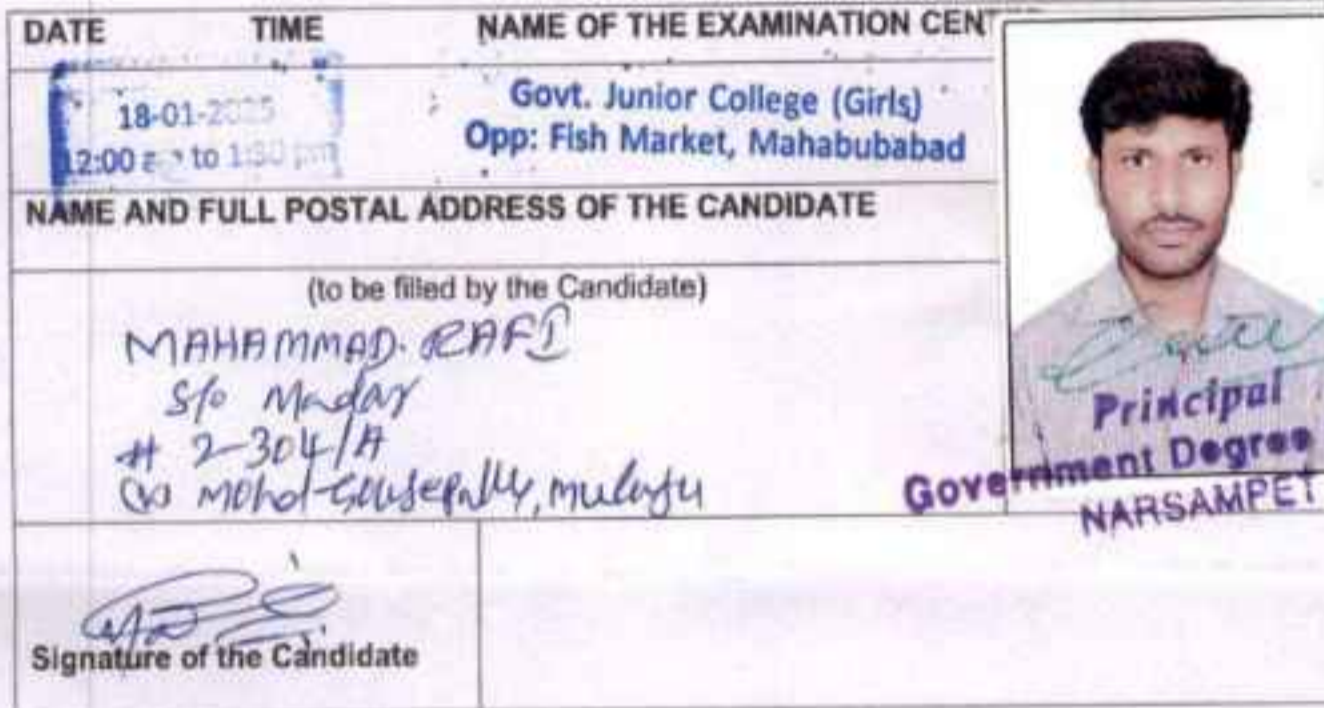 DATE TIME NAME OF THE EXAMINATION CENT
18-01-2025
12:00 to 1:30 pm
Govt. Junior College (Girls)
Opp: Fish Market, Mahabubabad
NAME AND FULL POSTAL ADDRESS OF THE CANDIDATE
(to be filled by the Candidate)
MAHAMMAD. RAFI
S/o Madar
# 2-304/A
Mohd Gousepally, mulugu
Principal
Government Degree
NARSAMPET
Signature of the Candidate